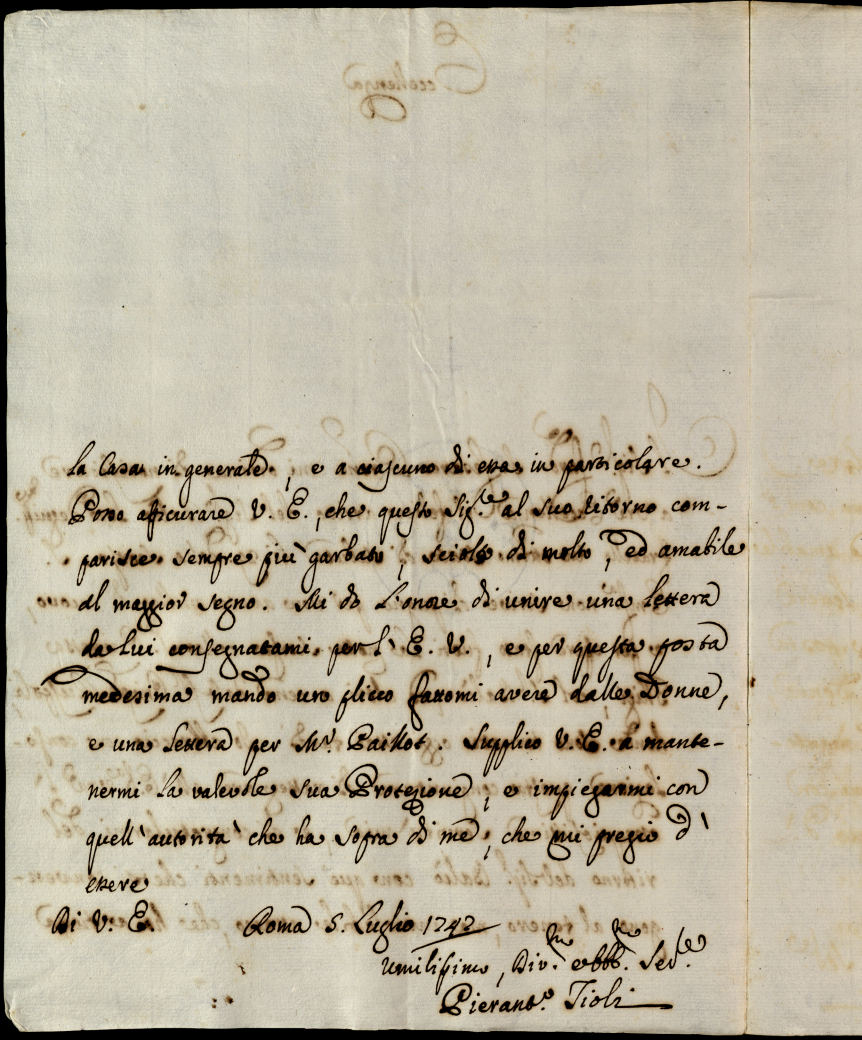 la Casa in generale, e a ciascuno di essa in particolare.
Posso assicurare V. E., che questo Sig.re al suo ritorno com-
parisce sempre più garbato, sciolto di molto, ed amabile
al maggior segno. Mi do l'onore di unire una lettera
da lui consegnatami per l'E. V., e per questa posta
medesima mando un plico fattomi avere dalle Donne,
e una lettera per Mr. Paillot. Supplico V. E. a mante-
nermi la valevole sua Protezione; e impiegarmi con
quell'autorità che ha sopra di me, che mi pregio d'
essere
Di V. E. Roma 5. Luglio 1747
Umilissimo, Div.mo obb.mo Ser.re
Pierant.o Tioli
Eccellenza